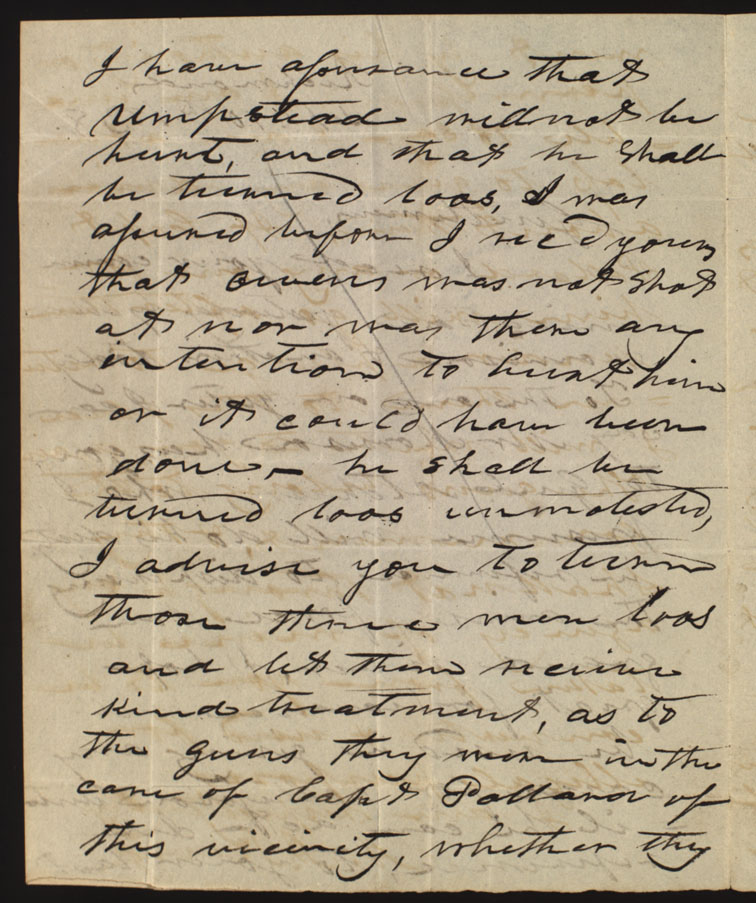 I have assurance that
umpstead will not be
hurt, and that he shall
be turned loos, I was
assured before I recd yours
that owens was not shot
at nor was there any
intention to hurt him
or it could have been
done, – he shall be
turned loos unmolested,
I advise you to turn
those three men loos
and let them receive
kind treatment, as to
the guns they were in the
care of Capt Pollard of
this vicinity, whether they